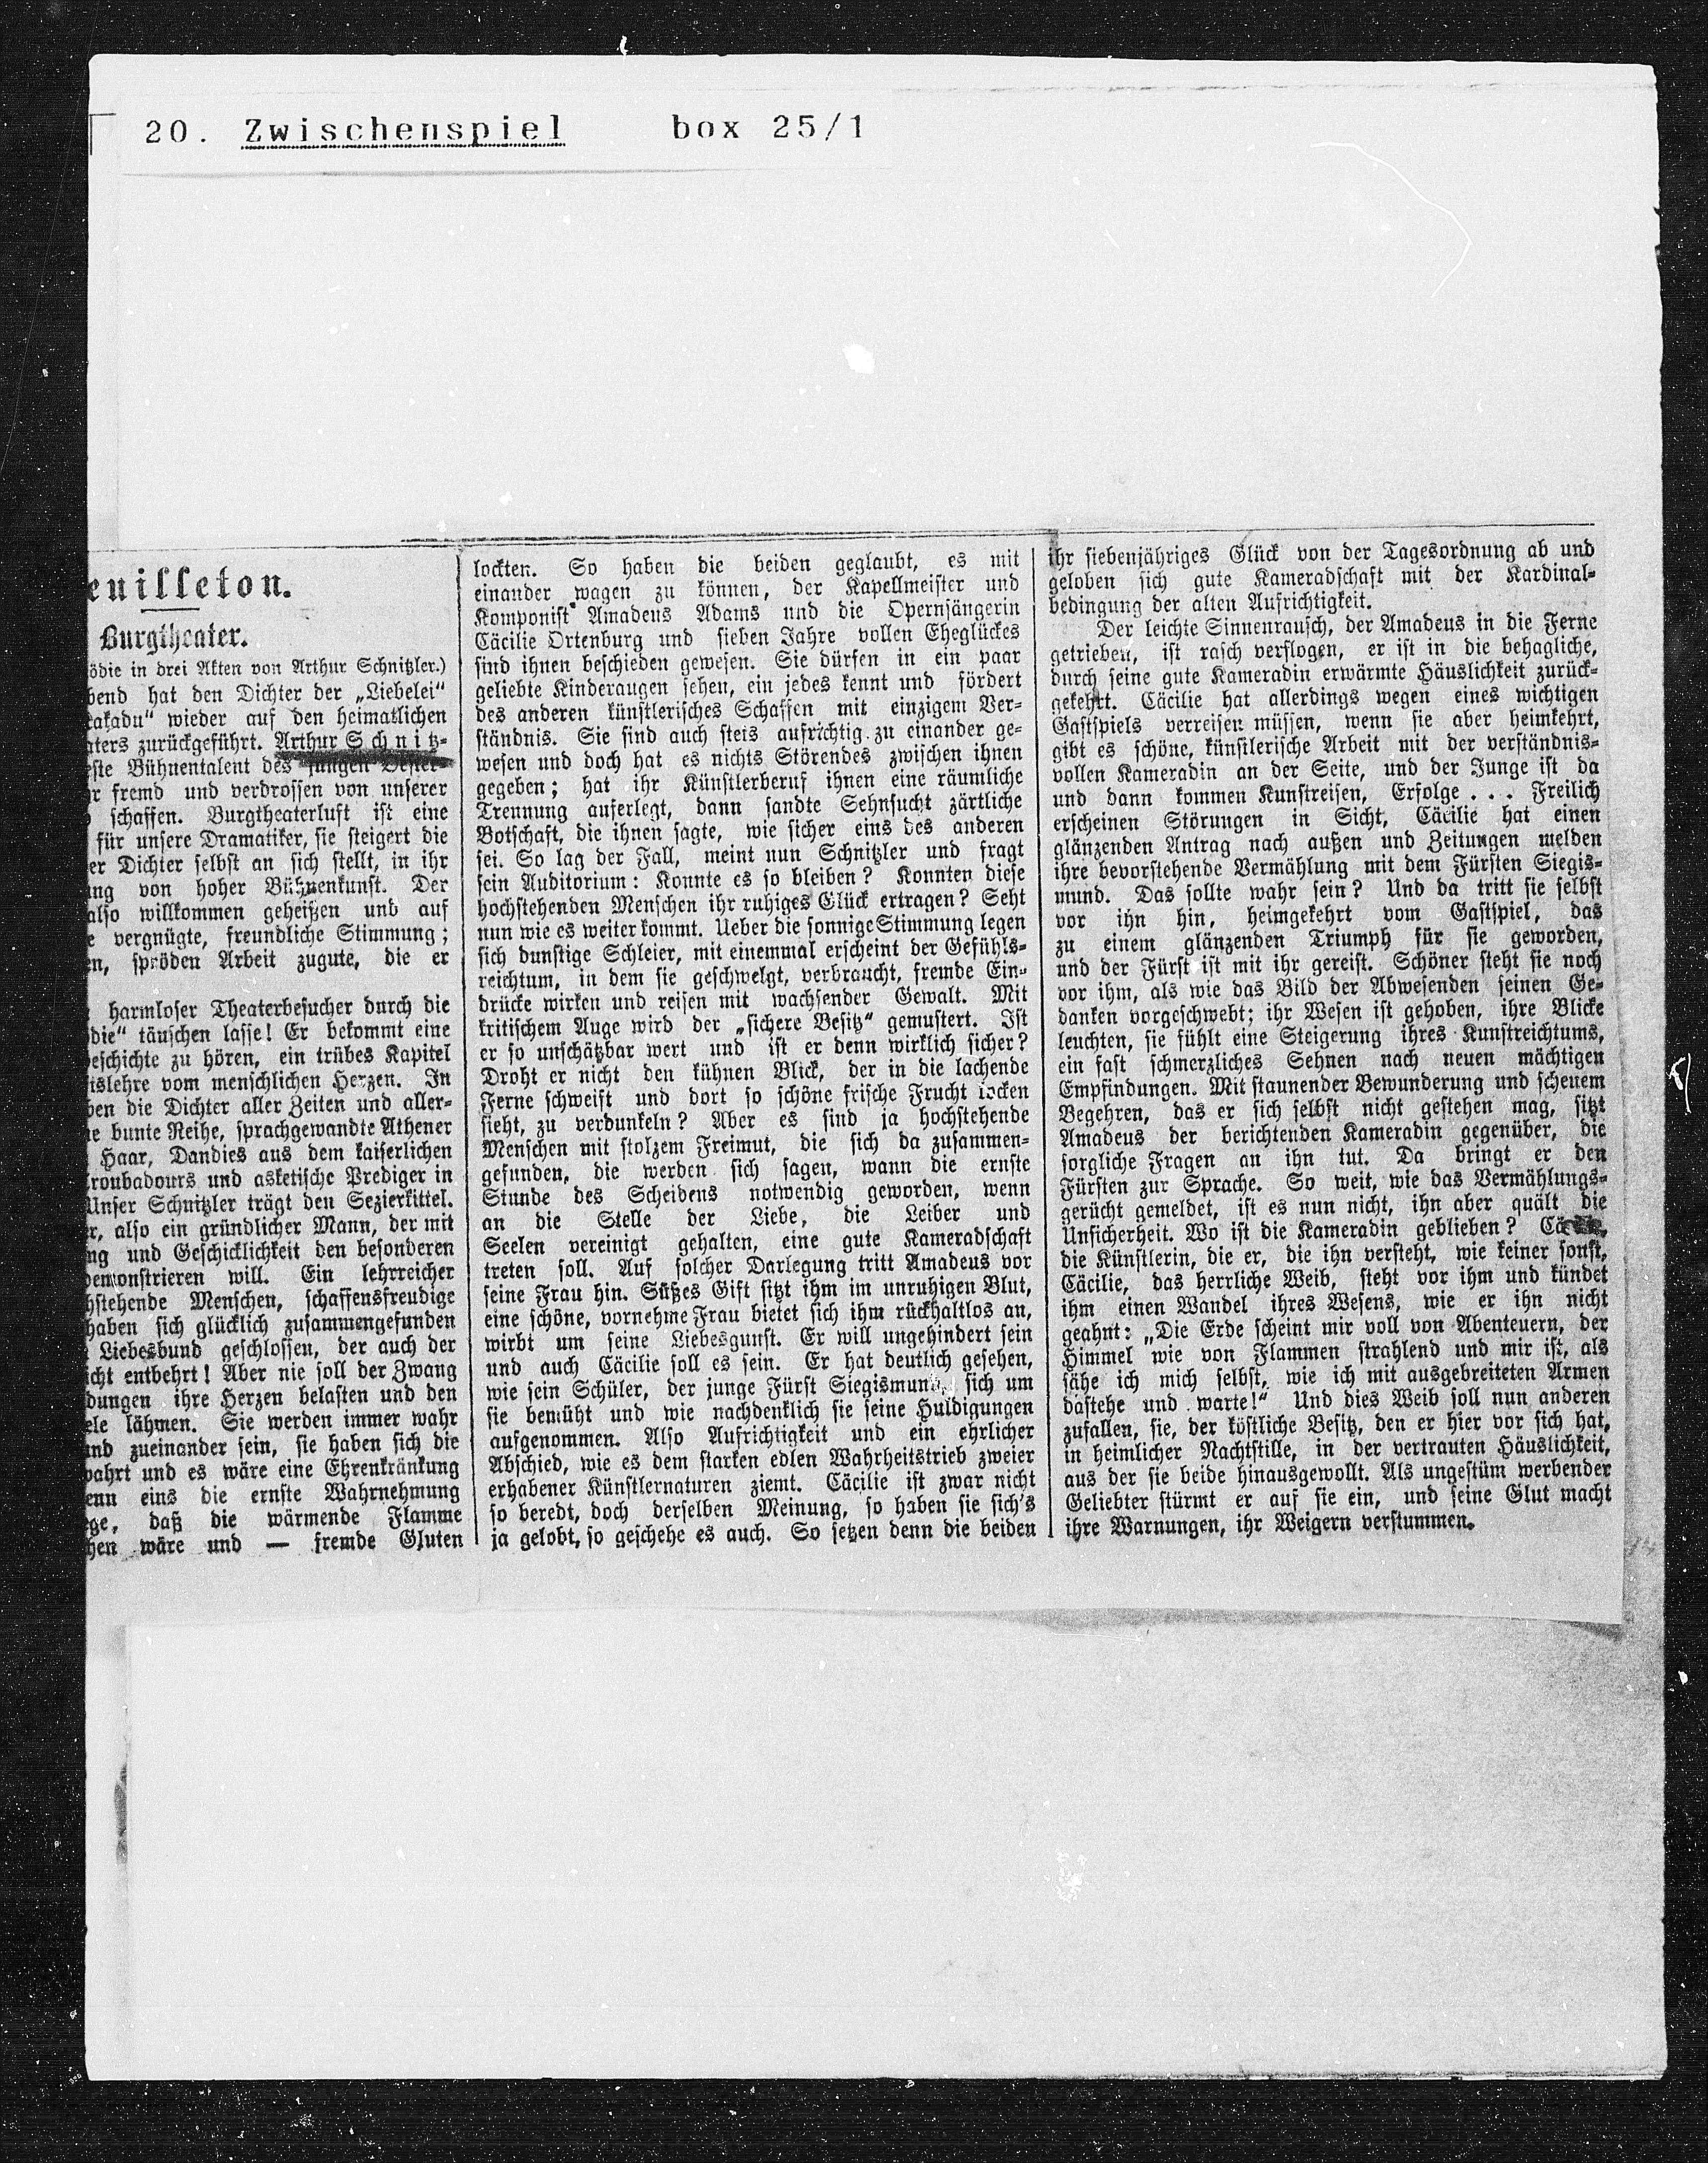 20. Zwischenspiel box 25/1
euilleton.
Burgtheater.
ödie in drei Akten von Arthur Schnitzler.)
bend hat den Dichter der „Liebelei“
kakadu“ wieder auf den heimatlichen
aters zurückgeführt. Arthur Schnitz-
este Bühnentalent des jungen Oester-
r fremd und verdrossen von unserer
schaffen. Burgtheaterluft ist eine
für unsere Dramatiker, sie steigert die
er Dichter selbst an sich stellt, in ihr
ung von hoher Bühnenkunst. Der
also willkommen geheißen und auf
e vergnügte, freundliche Stimmung;
en, spröden Arbeit zugute, die er
harmloser Theaterbesucher durch die
die“ täuschen lasse! Er bekommt eine
eschichte zu hören, ein trübes Kapitel
itslehre vom menschlichen Herzen. In
ben die Dichter aller Zeiten und aller-
ne bunte Reihe, sprachgewandte Athener
Haar, Dandies aus dem kaiserlichen
roubadours und asketische Prediger in
Unser Schnitzler trägt den Sezierkittel.
r, also ein gründlicher Mann, der mit
ng und Geschicklichkeit den besonderen
demonstrieren will. Ein lehrreicher
hstehende Menschen, schaffensfreudige
haben sich glücklich zusammengefunden
Liebesbund geschlossen, der auch der
icht entbehrt! Aber nie soll der Zwang
dungen ihre Herzen belasten und den
ele lähmen. Sie werden immer wahr
und zueinander sein, sie haben sich die
wahrt und es wäre eine Ehrenkränkung
enn eins die ernste Wahrnehmung
ege, daß die wärmende Flamme
hen wäre und — fremde Gluten
lockten. So haben die beiden geglaubt, es mit
einander wagen zu können, der Kapellmeister und
Komponist Amadeus Adams und die Opernsängerin
Cäcilie Ortenburg und sieben Jahre vollen Eheglückes
sind ihnen beschieden gewesen. Sie dürfen in ein paar
geliebte Kinderaugen sehen, ein jedes kennt und fördert
des anderen künstlerisches Schaffen mit einzigem Ver-
ständnis. Sie sind auch stets aufrichtig zu einander ge-
wesen und doch hat es nichts Störendes zwischen ihnen
gegeben; hat ihr Künstlerberuf ihnen eine räumliche
Trennung auferlegt, dann sandte Sehnsucht zärtliche
Botschaft, die ihnen sagte, wie sicher eins des anderen
sei. So lag der Fall, meint nun Schnitzler und fragt
sein Auditorium: Konnte es so bleiben? Konnten diese
hochstehenden Menschen ihr ruhiges Glück ertragen? Seht
nun wie es weiter kommt. Ueber die sonnige Stimmung legen
sich dunstige Schleier, mit einemmal erscheint der Gefühls-
reichtum, in dem sie geschwelgt, verbraucht, fremde Ein-
drücke wirken und reisen mit wachsender Gewalt. Mit
kritischem Auge wird der „sichere Besitz“ gemustert. Ist
er so unschätzbar wert und ist er denn wirklich sicher?
Droht er nicht den kühnen Blick, der in die lachende
Ferne schweift und dort so schöne frische Frucht locken
sieht, zu verdunkeln? Aber es sind ja hochstehende
Menschen mit stolzem Freimut, die sich da zusammen-
gefunden, die werden sich sagen, wann die ernste
Stunde des Scheidens notwendig geworden, wenn
an die Stelle der Liebe, die Leiber und
Seelen vereinigt gehalten, eine gute Kameradschaft
treten soll. Auf solcher Darlegung tritt Amadeus vor
seine Frau hin. Süßes Gift sitzt ihm im unruhigen Blut,
eine schöne, vornehme Frau bietet sich ihm rückhaltlos an,
wirbt um seine Liebesgunst. Er will ungehindert sein
und auch Cäcilie soll es sein. Er hat deutlich gesehen,
wie sein Schüler, der junge Fürst Siegismund, sich um
sie bemüht und wie nachdenklich sie seine Huldigungen
aufgenommen. Also Aufrichtigkeit und ein ehrlicher
Abschied, wie es dem starken edlen Wahrheitstrieb zweier
erhabener Künstlernaturen ziemt. Cäcilie ist zwar nicht
so beredt, doch derselben Meinung, so haben sie sich's
ja gelobt, so geschehe es auch. So setzen denn die beiden
ihr siebenjähriges Glück von der Tagesordnung ab und
geloben sich gute Kameradschaft mit der Kardinal-
bedingung der alten Aufrichtigkeit.
Der leichte Sinnenrausch, der Amadeus in die Ferne
getrieben, ist rasch verflogen, er ist in die behagliche,
durch seine gute Kameradin erwärmte Häuslichkeit zurück-
gekehrt. Cäcilie hat allerdings wegen eines wichtigen
Gastspiels verreisen müssen, wenn sie aber heimkehrt,
gibt es schöne, künstlerische Arbeit mit der verständnis-
vollen Kameradin an der Seite, und der Junge ist da
und dann kommen Kunstreisen, Erfolge . . . Freilich
erscheinen Störungen in Sicht, Cäcilie hat einen
glänzenden Antrag nach außen und Zeitungen melden
ihre bevorstehende Vermählung mit dem Fürsten Siegis-
mund. Das sollte wahr sein? Und da tritt sie selbst
vor ihn hin, heimgekehrt vom Gastspiel, das
zu einem glänzenden Triumph für sie geworden,
und der Fürst ist mit ihr gereist. Schöner steht sie noch
vor ihm, als wie das Bild der Abwesenden seinen Ge-
danken vorgeschwebt; ihr Wesen ist gehoben, ihre Blicke
leuchten, sie fühlt eine Steigerung ihres Kunstreichtums,
ein fast schmerzliches Sehnen nach neuen mächtigen
Empfindungen. Mit staunender Bewunderung und scheuem
Begehren, das er sich selbst nicht gestehen mag, sitzt
Amadeus der berichtenden Kameradin gegenüber, die
sorgliche Fragen an ihn tut. Da bringt er den
Fürsten zur Sprache. So weit, wie das Vermählungs-
gerücht gemeldet, ist es nun nicht, ihn aber quält die
Unsicherheit. Wo ist die Kameradin geblieben?
die Künstlerin, die er, die ihn versteht, wie keiner sonst,
Cäcilie, das herrliche Weib, steht vor ihm und kündet
ihm einen Wandel ihres Wesens, wie er ihn nicht
geahnt: „Die Erde scheint mir voll von Abenteuern, der
Himmel wie von Flammen strahlend und mir ist, als
sähe ich mich selbst, wie ich mit ausgebreiteten Armen
dastehe und warte!“ Und dies Weib soll nun anderen
zufallen, sie, der köstliche Besitz, den er hier vor sich hat,
in heimlicher Nachtstille, in der vertrauten Häuslichkeit,
aus der sie beide hinausgewollt. Als ungestüm werbender
Geliebter stürmt er auf sie ein, und seine Glut macht
ihre Warnungen, ihr Weigern verstummen.